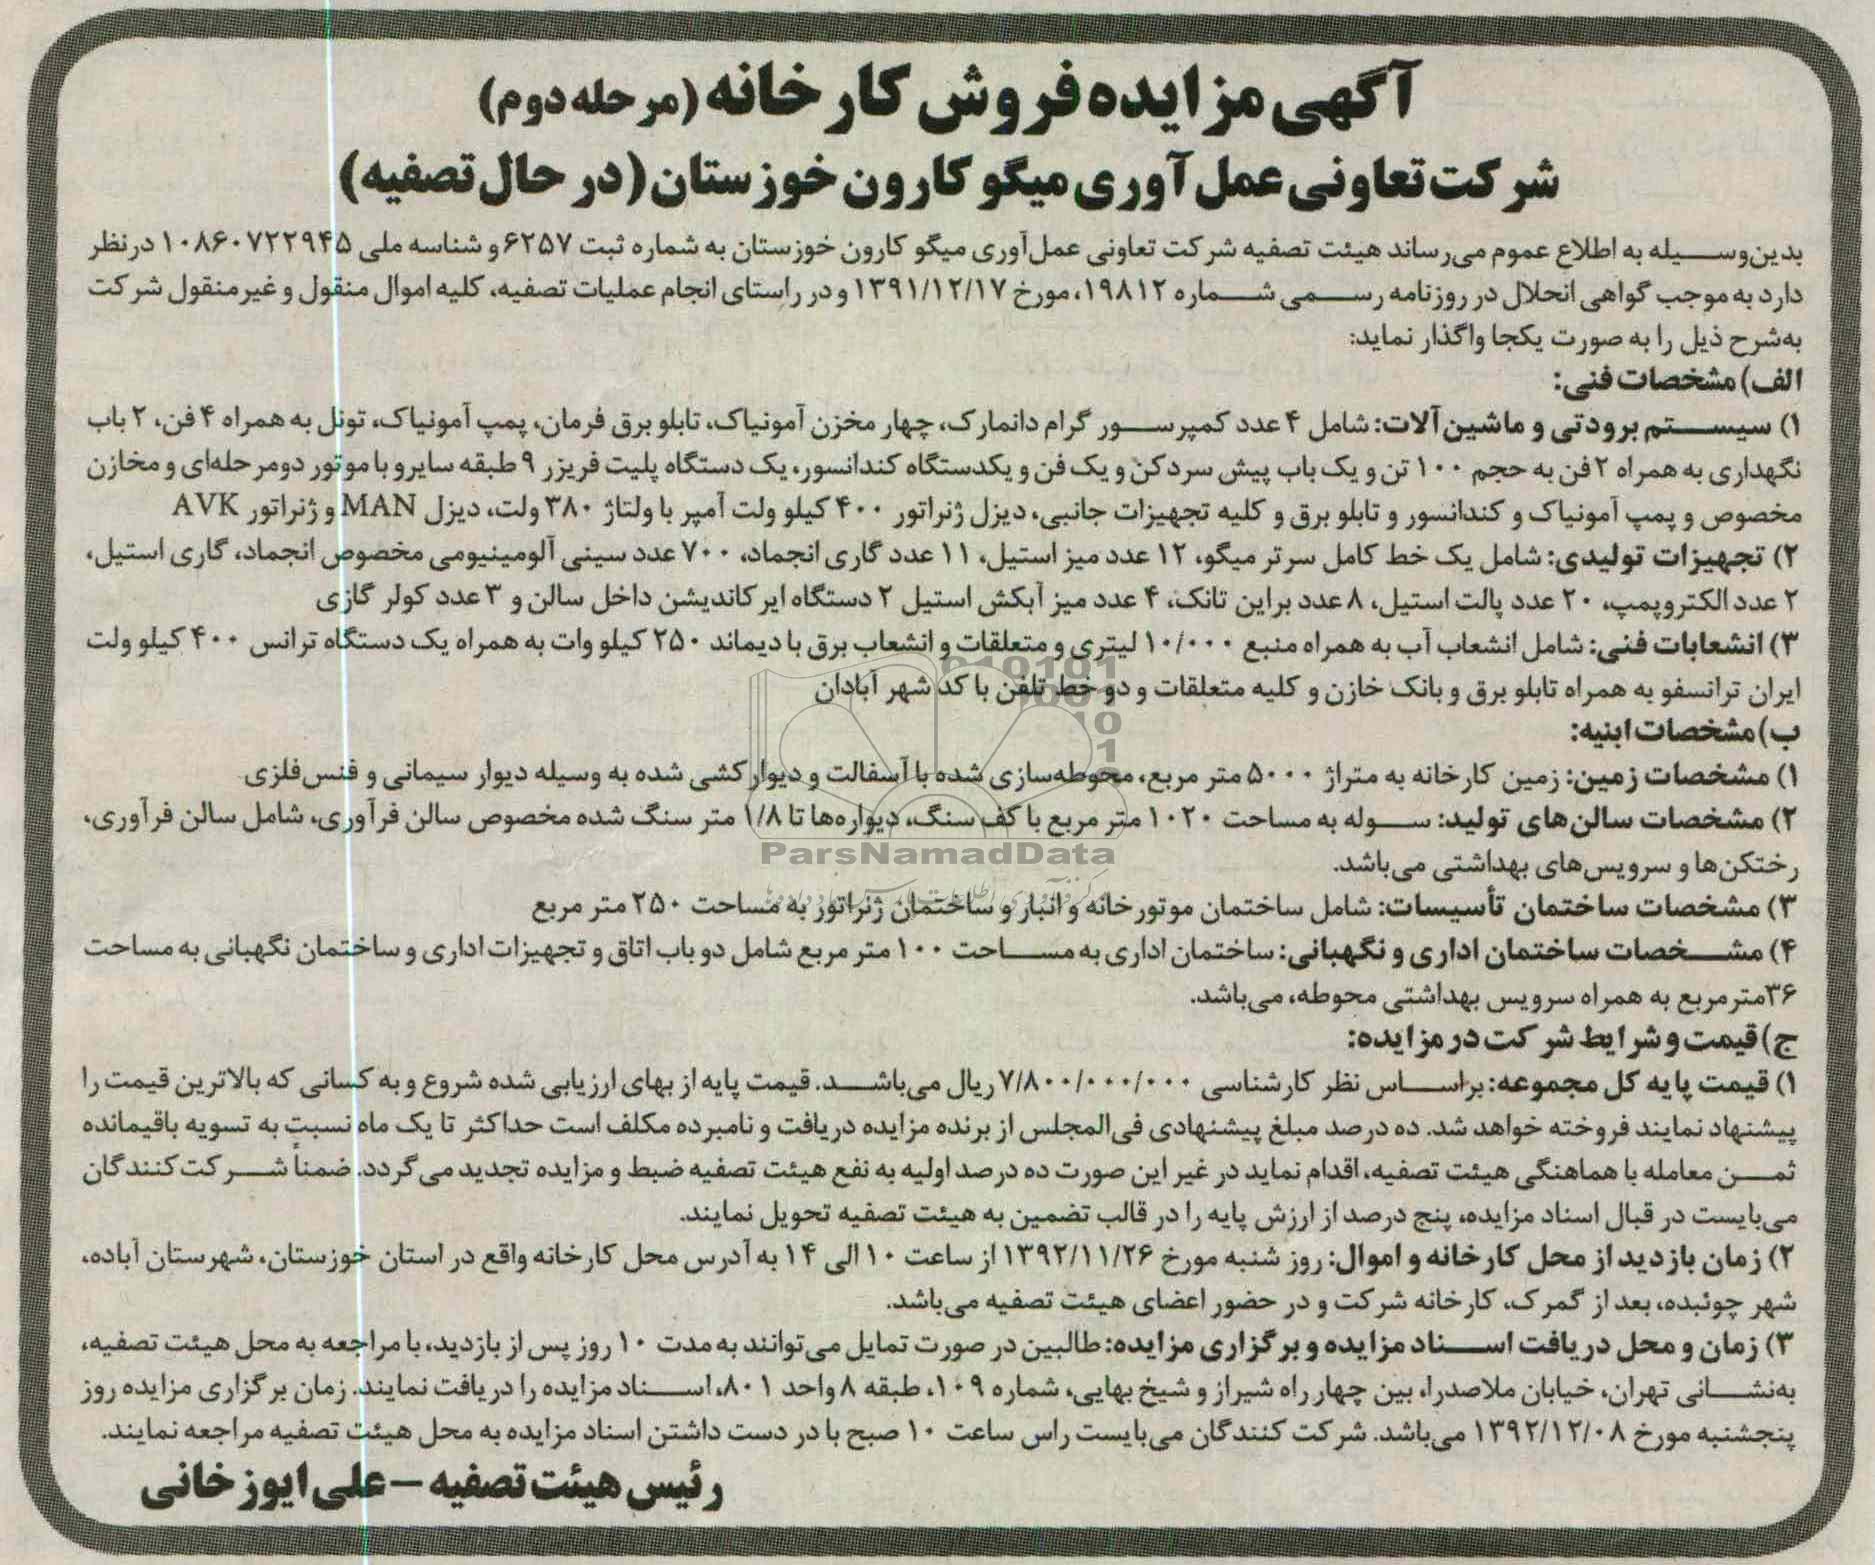 آگهی مزایده فروش کارخانه (مرحله دوم)
شرکت تعاونی عمل آوری میگو کارون خوزستان (در حال تصفیه)
بدین‌وسیله به اطلاع عموم می‌رساند هیئت تصفیه شرکت تعاونی عمل‌آوری میگو کارون خوزستان به شماره ثبت ۶۲۵۷ و شناسه ملی ۱۰۸۶۰۷۲۲۹۴۵ درنظر
دارد به موجب گواهی انحلال در روزنامه رسمی شماره ۱۹۸۱۲، مورخ ۱۳۹۱/۱۲/۱۷ و در راستای انجام عملیات تصفیه، کلیه اموال منقول و غیرمنقول شرکت
به‌شرح ذیل را به صورت یکجا واگذار نماید:
الف) مشخصات فنی:
۱) سیستم برودتی و ماشین آلات: شامل ۴ عدد کمپرسور گرام دانمارک، چهار مخزن آمونیاک، تابلو برق فرمان، پمپ آمونیاک، تونل به همراه ۴ فن، ۲ باب
نگهداری به همراه ۲ فن به حجم ۱۰۰ تن و یک باب پیش سردکن و یک فن و یکدستگاه کندانسور، یک دستگاه پلیت فریزر ۹ طبقه سایرو با موتور دومرحله‌ای و مخازن
مخصوص و پمپ آمونیاک و کندانسور و تابلو برق و کلیه تجهیزات جانبی، دیزل ژنراتور ۴۰۰ کیلو ولت آمپر با ولتاژ ۳۸۰ ولت، دیزل MAN و ژنراتور AVK
۲) تجهیزات تولیدی: شامل یک خط کامل سرتر میگو، ۱۲ عدد میز استیل، ۱۱ عدد گاری انجماد، ۷۰۰ عدد سینی آلومینیومی مخصوص انجماد، گاری استیل،
۲ عدد الکتروپمپ، ۲۰ عدد پالت استیل، ۸ عدد براین تانک، ۴ عدد میز آبکش استیل ۲ دستگاه ایرکاندیشن داخل سالن و ۳ عدد کولر گازی
۳) انشعابات فنی: شامل انشعاب آب به همراه منبع ۱۰/۰۰۰ لیتری و متعلقات و انشعاب برق با دیماند ۲۵۰ کیلو وات به همراه یک دستگاه ترانس ۴۰۰ کیلو ولت
ایران ترانسفو به همراه تابلو برق و بانک خازن و کلیه متعلقات و دو خط تلفن با کد شهر آبادان
ب) مشخصات ابنیه:
۱) مشخصات زمین: زمین کارخانه به متراژ ۵۰۰۰ متر مربع، محوطه‌سازی شده با آسفالت و دیوارکشی شده به وسیله دیوار سیمانی و فنس فلزی
۲) مشخصات سالن‌های تولید: سوله به مساحت ۱۰۲۰ متر مربع با کف سنگ، دیواره‌ها تا ۱/۸ متر سنگ شده مخصوص سالن فرآوری، شامل سالن فرآوری،
رختکن‌ها و سرویس‌های بهداشتی می‌باشد.
ParsNamadData
۳) مشخصات ساختمان تأسیسات: شامل ساختمان موتورخانه و انبار و ساختمان ژنراتور به مساحت ۲۵۰ متر مربع
۴) مشخصات ساختمان اداری و نگهبانی: ساختمان اداری به مساحت ۱۰۰ متر مربع شامل دو باب اتاق و تجهیزات اداری و ساختمان نگهبانی به مساحت
۳۶مترمربع به همراه سرویس بهداشتی محوطه، می‌باشد.
ج) قیمت و شرایط شرکت در مزایده:
۱) قیمت پایه کل مجموعه: براساس نظر کارشناسی ۷/۸۰۰/۰۰۰/۰۰۰ ریال می‌باشد. قیمت پایه از بهای ارزیابی شده شروع و به کسانی که بالاترین قیمت را
پیشنهاد نمایند فروخته خواهد شد. ده درصد مبلغ پیشنهادی فی‌المجلس از برنده مزایده دریافت و نامبرده مکلف است حداکثر تا یک ماه نسبت به تسویه باقیمانده
ثمن معامله با هماهنگی هیئت تصفیه، اقدام نماید در غیر این صورت ده درصد اولیه به نفع هیئت تصفیه ضبط و مزایده تجدید می‌گردد. ضمناً شرکت کنندگان
می‌بایست در قبال اسناد مزایده، پنج درصد از ارزش پایه را در قالب تضمین به هیئت تصفیه تحویل نمایند.
۲) زمان بازدید از محل کارخانه و اموال: روز شنبه مورخ ۱۳۹۲/۱۱/۲۶ از ساعت ۱۰ الی ۱۴ به آدرس محل کارخانه واقع در استان خوزستان، شهرستان آباده،
شهر چوئبده، بعد از گمرک، کارخانه شرکت و در حضور اعضای هیئت تصفیه می‌باشد.
۳) زمان و محل دریافت اسناد مزایده و برگزاری مزایده: طالبین در صورت تمایل می‌توانند به مدت ۱۰ روز پس از بازدید، با مراجعه به محل هیئت تصفیه،
به‌نشانی تهران، خیابان ملاصدرا، بین چهارراه شیراز و شیخ بهایی، شماره ۱۰۹، طبقه ۸ واحد ۸۰۱، اسناد مزایده را دریافت نمایند. زمان برگزاری مزایده روز
پنجشنبه مورخ ۱۳۹۲/۱۲/۰۸ می‌باشد. شرکت کنندگان می‌بایست راس ساعت ۱۰ صبح با در دست داشتن اسناد مزایده به محل هیئت تصفیه مراجعه نمایند.
رئیس هیئت تصفیه – علی ایوزخانی